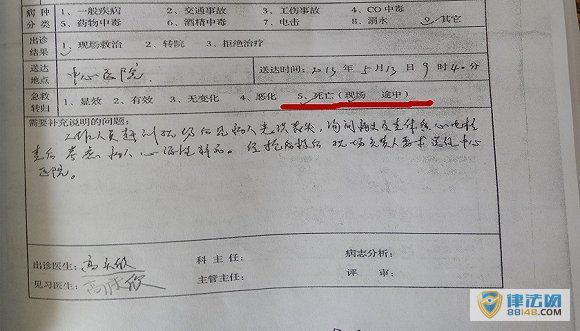 病种分类 1、一般疾病 2、交通事故 3、工伤事故 4、CO中毒
5、药物中毒 6、酒精中毒 7、电击 8、溺水 9、其它
出诊结果 1、现场救治 2、转院 3、拒绝治疗
送达地点 中心医院 送达时间:2013年5月13日9时40分
急救转归 1、显效 2、有效 3、无变化 4、恶化 5、死亡(现场 途中)
需要补充说明的问题:
工作人员赶到现场后见病人意识丧失,询问病史及查体后心电检
查后考虑病人心源性猝死。经抢救后 现场负责人要求送往中心
医院。
出诊医生: 科主任: 病志分析:
见习医生: 主管主任: 评审:
律法网
88148.com